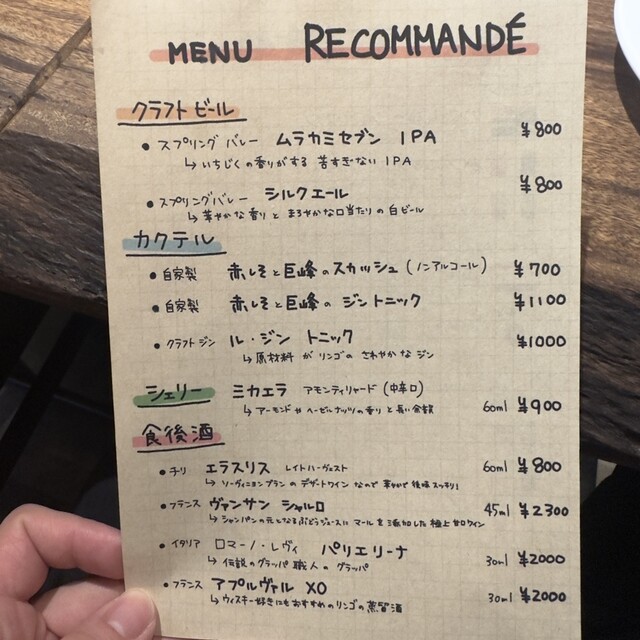 MENU RECOMMANDÉ
クラフトビール
• スプリングバレー ムラカミセブン IPA ¥800
↳ いちじくの香りがする 苦すぎない IPA
• スプリングバレー シルクエール ¥800
↳ 華やかな香りと まろやかな口当たりの白ビール
カクテル
• 自家製 赤しそと巨峰のスカッシュ (ノンアルコール) ¥700
• 自家製 赤しそと巨峰の ジントニック ¥1100
• クラフトジン ル・ジン トニック ¥1000
↳ 原材料 が リンゴの さわやかな ジン
シェリー ミカエラ アモンティリャード (中辛口) 60ml ¥900
↳ アーモンドやヘーゼルナッツの香りと長い余韻
食後酒
• チリ エラスリス レイトハーヴェスト 60ml ¥800
↳ ソーヴィニヨンブランの デザートワイン なので 華やかで 後味スッキリ!
• フランス ヴァンサン シャルロ 45ml ¥2300
↳ シャンパンの元となるぶどうジュースに マールを添加した極上甘口ワイン
• イタリア ロマーノ・レヴィ パリエリーナ 30ml ¥2000
↳ 伝説のグラッパ職人の グラッパ
• フランス アプルヴァル XO 30ml ¥2000
↳ ウィスキー好きにもおすすめのリンゴの蒸留酒